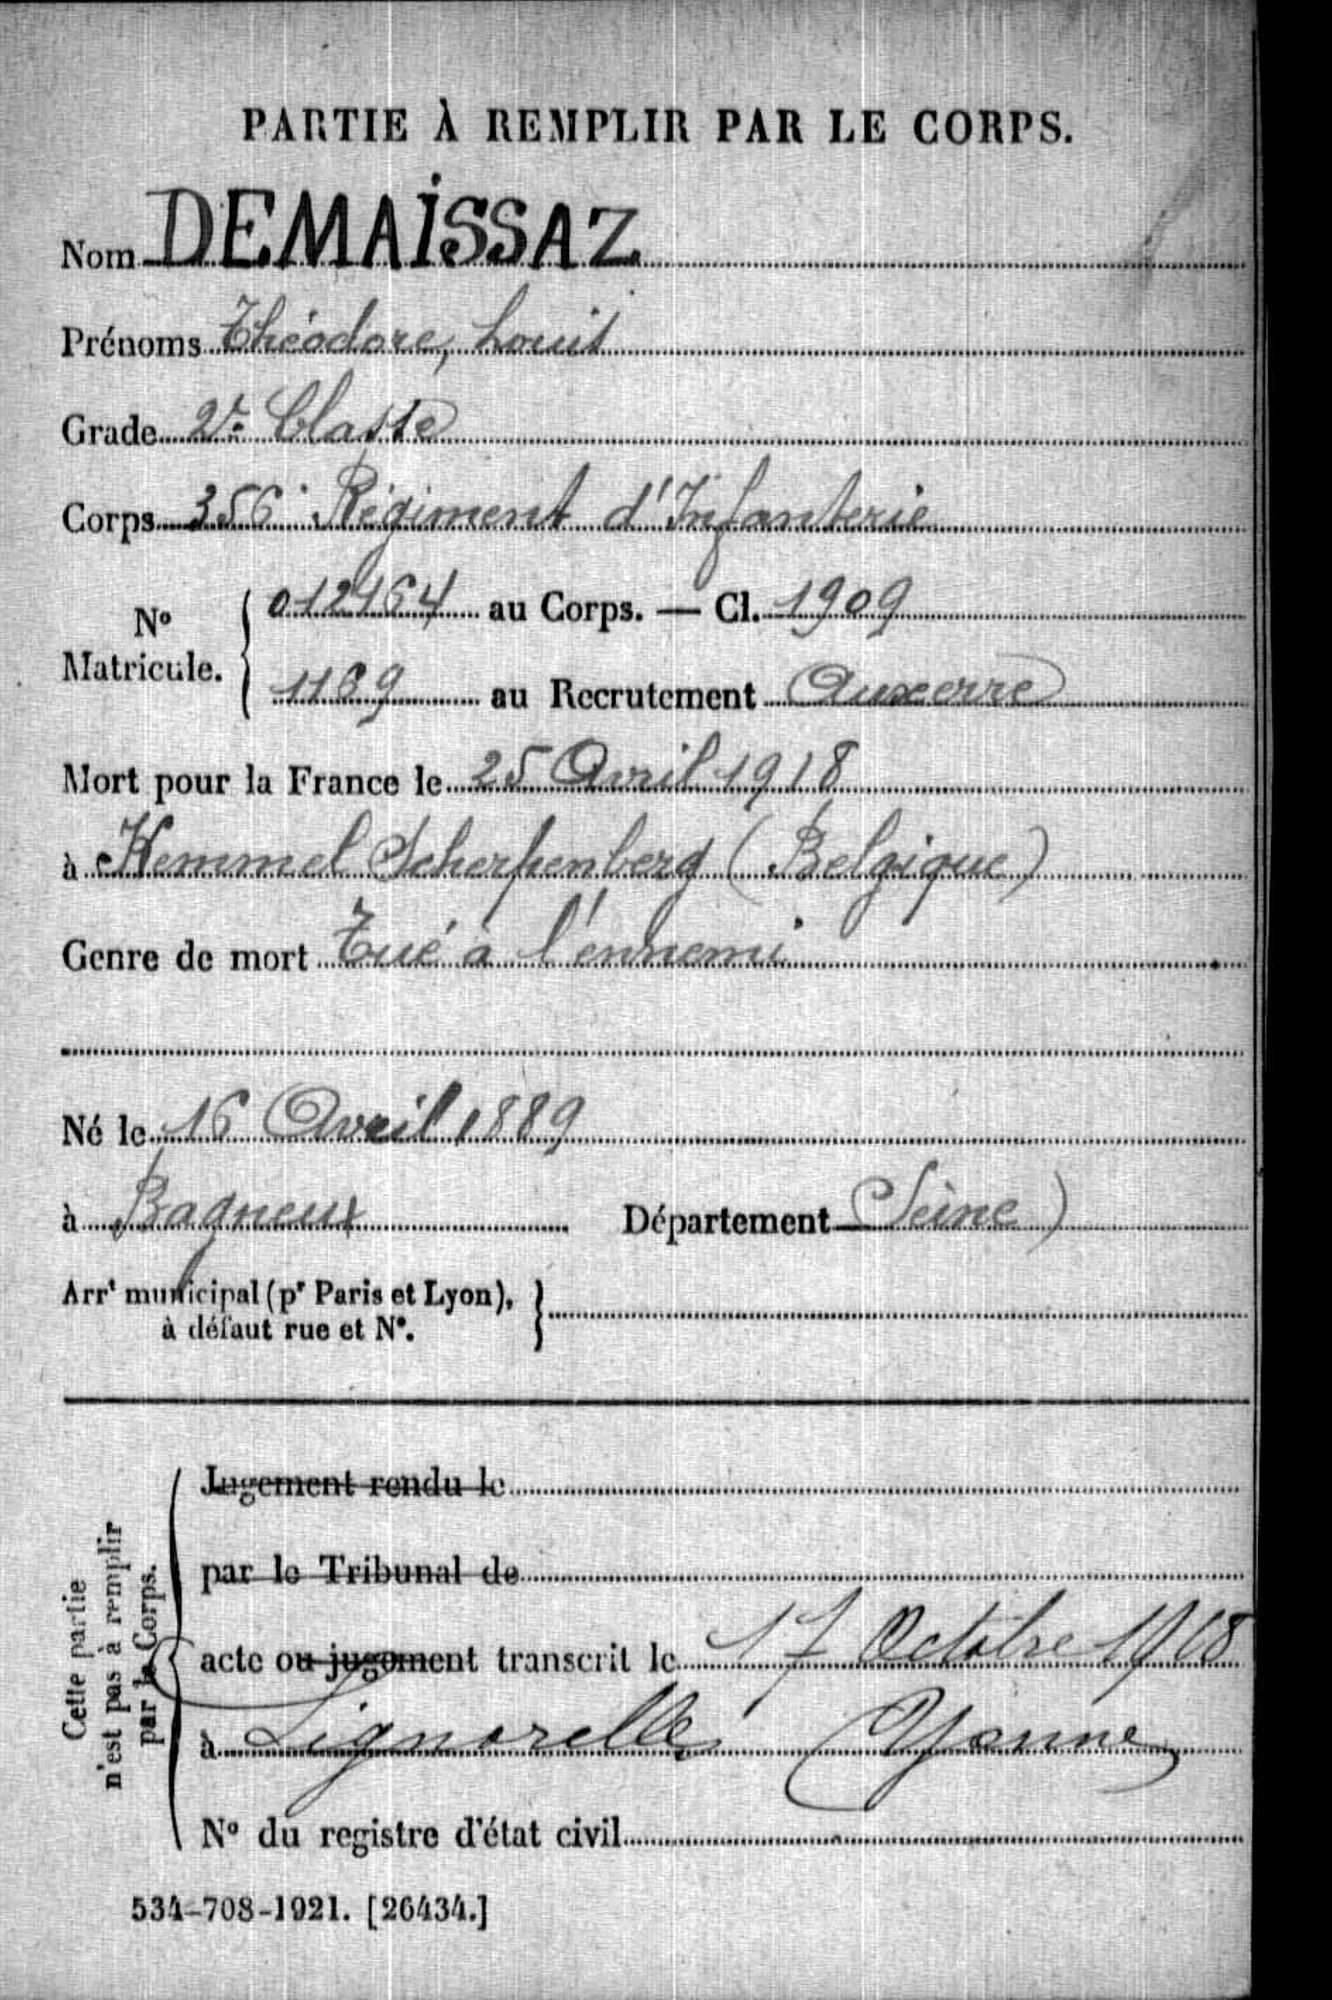 PARTIE À REMPLIR PAR LE CORPS.
Nom DEMAISSAZ
Prénoms Théodore, Louis
Grade 2e Classe
Corps 356e Régiment d'Infanterie
No Matricule. 012464 au Corps. — Cl. 1909
1169 au Recrutement Auxerre
Mort pour la France le 25 Avril 1918
à Kemmel Scherpenberg (Belgique)
Genre de mort Tué à l'ennemi
Né le 16 Avril 1889
à Bagneux Département (Seine)
Arrt municipal (pr Paris et Lyon),
à défaut rue et No.
Cette partie
n'est pas à remplir
par le Corps.
Jugement rendu le
par le Tribunal de
acte ou jugement transcrit le 17 Octobre 1918
à Lignorelles (Yonne)
No du registre d'état civil
534-708-1921. [26434.]